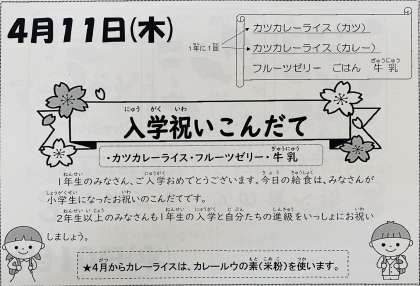 4月11日(木)
1年に1回
カツカレーライス（カツ）
カツカレーライス（カレー）
フルーツゼリー　ごはん　牛乳
入学祝いこんだて
・カツカレーライス・フルーツゼリー・牛乳
1年生のみなさん、ご入学おめでとうございます。今日の給食は、みなさんが
小学生になったお祝いのこんだてです。
2年生以上のみなさんも1年生の入学と自分たちの進級をいっしょにお祝い
しましょう。
★4月からカレーライスは、カレールウの素(米粉)を使います。